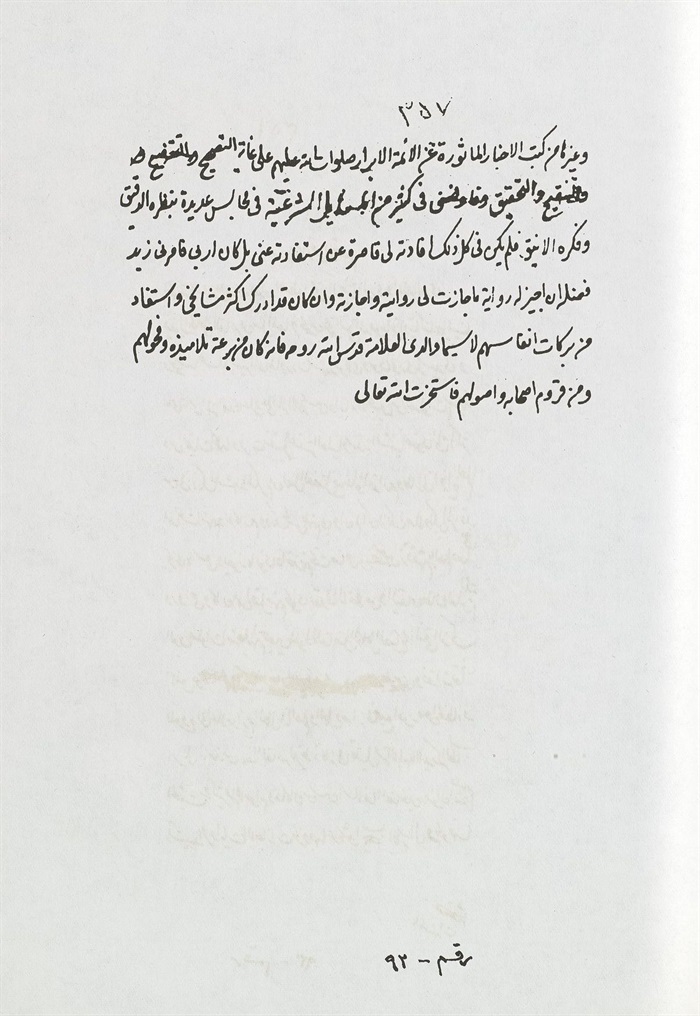 ٣٥٧
وغيرها من كتب الاخبار الماثورة عن الائمة الابرار صلوات الله عليهم على غاية التصحيح والتنقيح
والتحقيق وفاوضنى فى كثير من المسائل الشرعية فى مجالس عديدة بنظره الدقيق
وفكره الانيق فلم يكن فى كل ذلك افادته لى قاصرة عن استفادته عنى بل كان اربى فامرنى زيد
فضله ان اجيز له رواية ما جازت لى روايته واجازته وان كان قد ادرك اكثر مشايخى واستفاد
من بركات انفاسهم لا سيما والدى العلامة قدس الله روحه فانه كان من برعة تلاميذه وفحولهم
ومن قروم اصحابه واصولهم فاستخرت الله تعالى
رقم - ٩٢